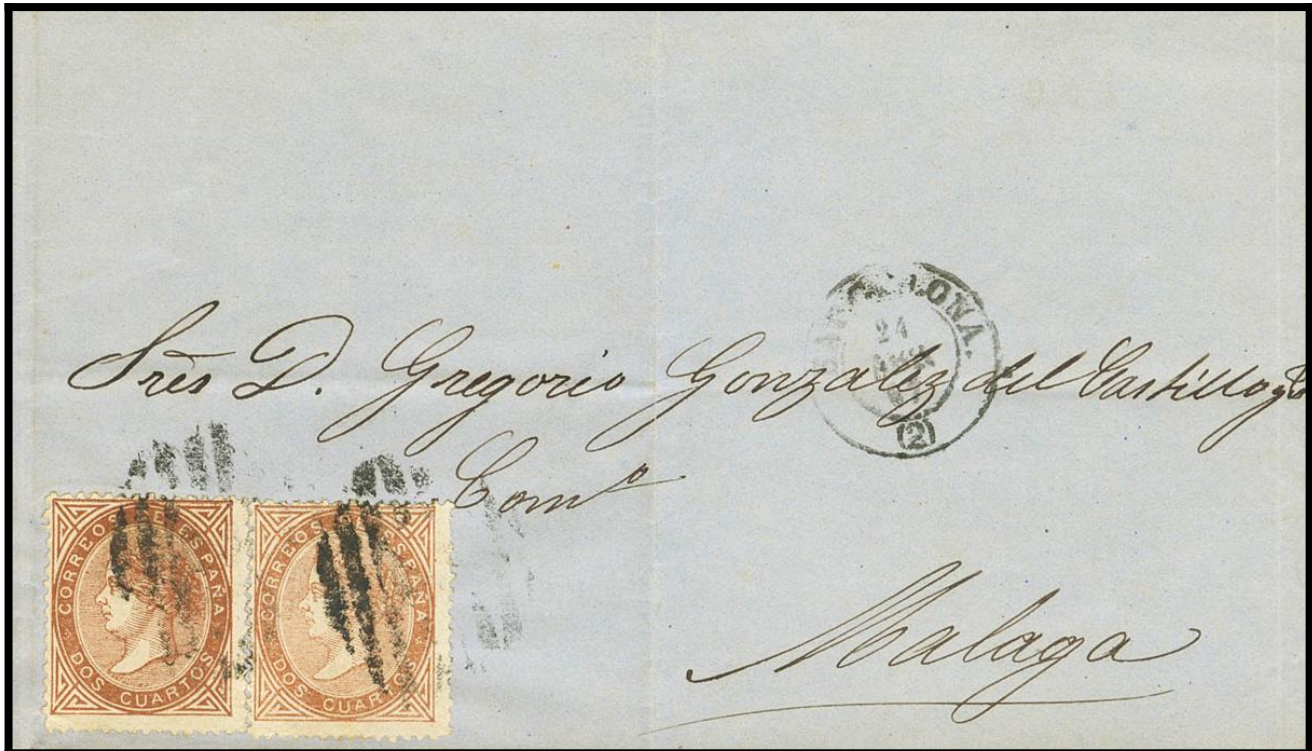 BARCELONA.
24
(2)
Sres D. Gregorio Gonzalez del Castillo y
Comª
Malaga
CORREOS DE ESPAÑA
DOS CUARTOS
CORREOS DE ESPAÑA
DOS CUARTOS